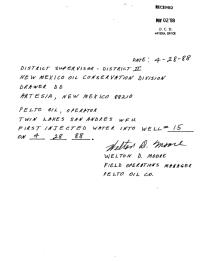 RECEIVED
MAY 02 '88
O. C. D.
ARTESIA, OFFICE
DATE: 4-28-88
DISTRICT SUPERVISOR - DISTRICT II
NEW MEXICO OIL CONSERVATION DIVISION
DRAWER DD
ARTESIA, NEW MEXICO 88210
PELTO OIL, OPERATOR
TWIN LAKES SAN ANDRES WFU
FIRST INJECTED WATER INTO WELL # 15
ON 4 28 88.
Welton D. Moore
WELTON D. MOORE
FIELD OPERATIONS MANAGER
PELTO OIL CO.